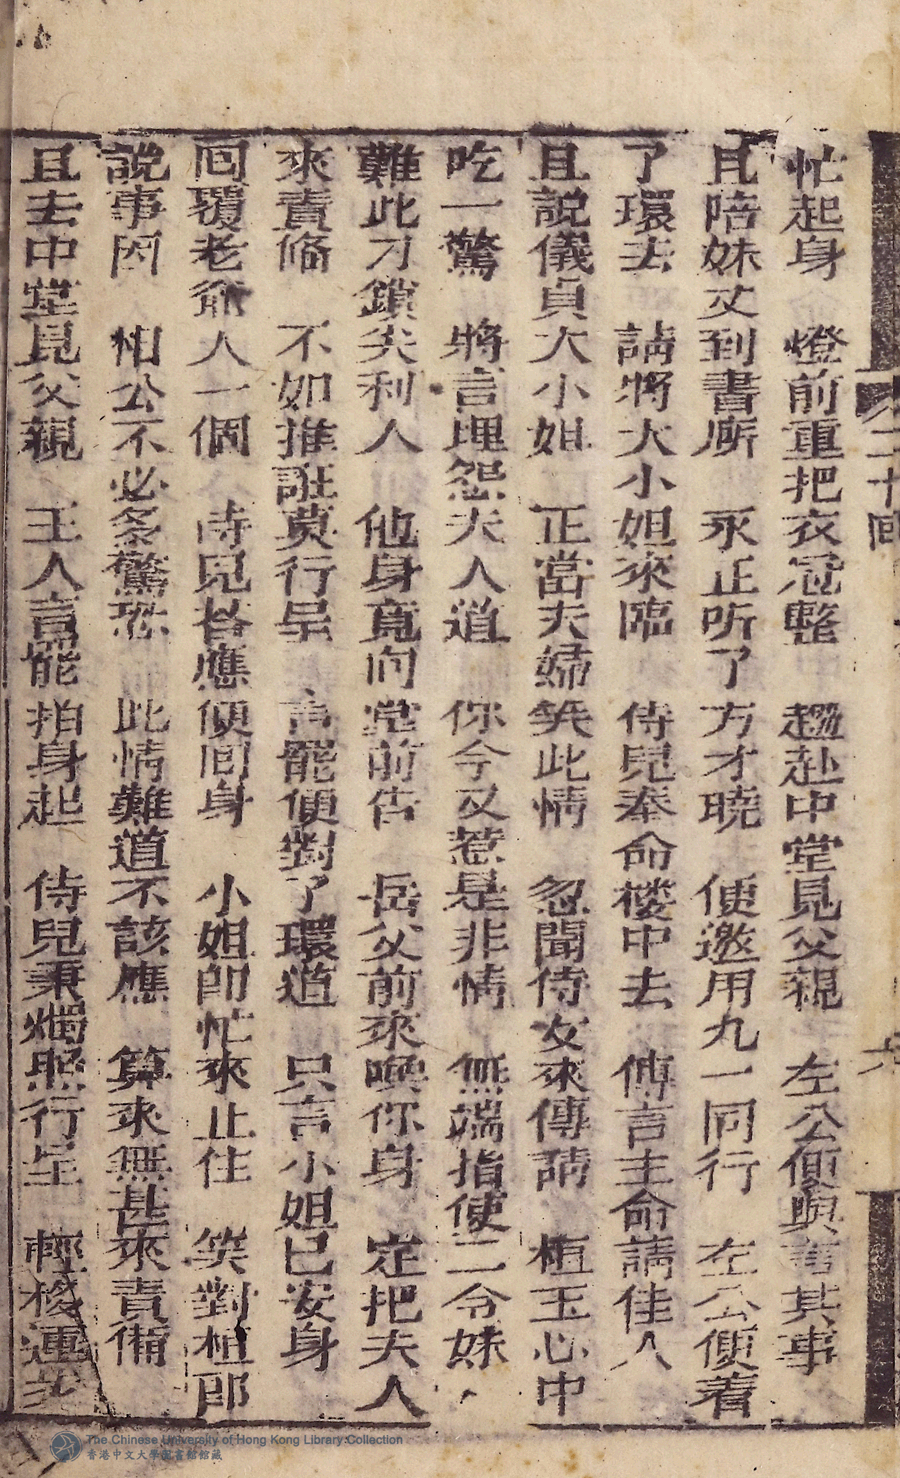 忙起身　燈前重把衣冠整　趨赴中堂見父親　左公便與言其事
且陪妹丈到書𠩄　永正听了方才曉　便邀用九一同行　左公便着
了環去　請將大小姐來臨　侍兒奉命楼中去　傳言主命請佳人
且說儀貞大小姐　正當夫婦笑此情　忽聞侍女來傳請　桓玉心中
吃一驚　將言埋怨夫人道　你今又惹是非情　無端指使二令妹
難此刁鑽尖利人　他身竟向堂前告　岳父前來喚你身　定把夫人
來責備　不如推誑莫行呈　言罷便對了環道　只言小姐已安身
囘覆老爺人一個　侍兒答應便囘身　小姐即忙來止住　笑對桓郎
說事因　相公不必条驚恐　此情難道不該應　算來無甚來責備
且去中堂見父親　王人言罷抬身起　侍兒秉燭照行呈　輕移蓮步
二十囬
六
The Chinese University of Hong Kong Library Collection
香港中文大學圖書館館藏